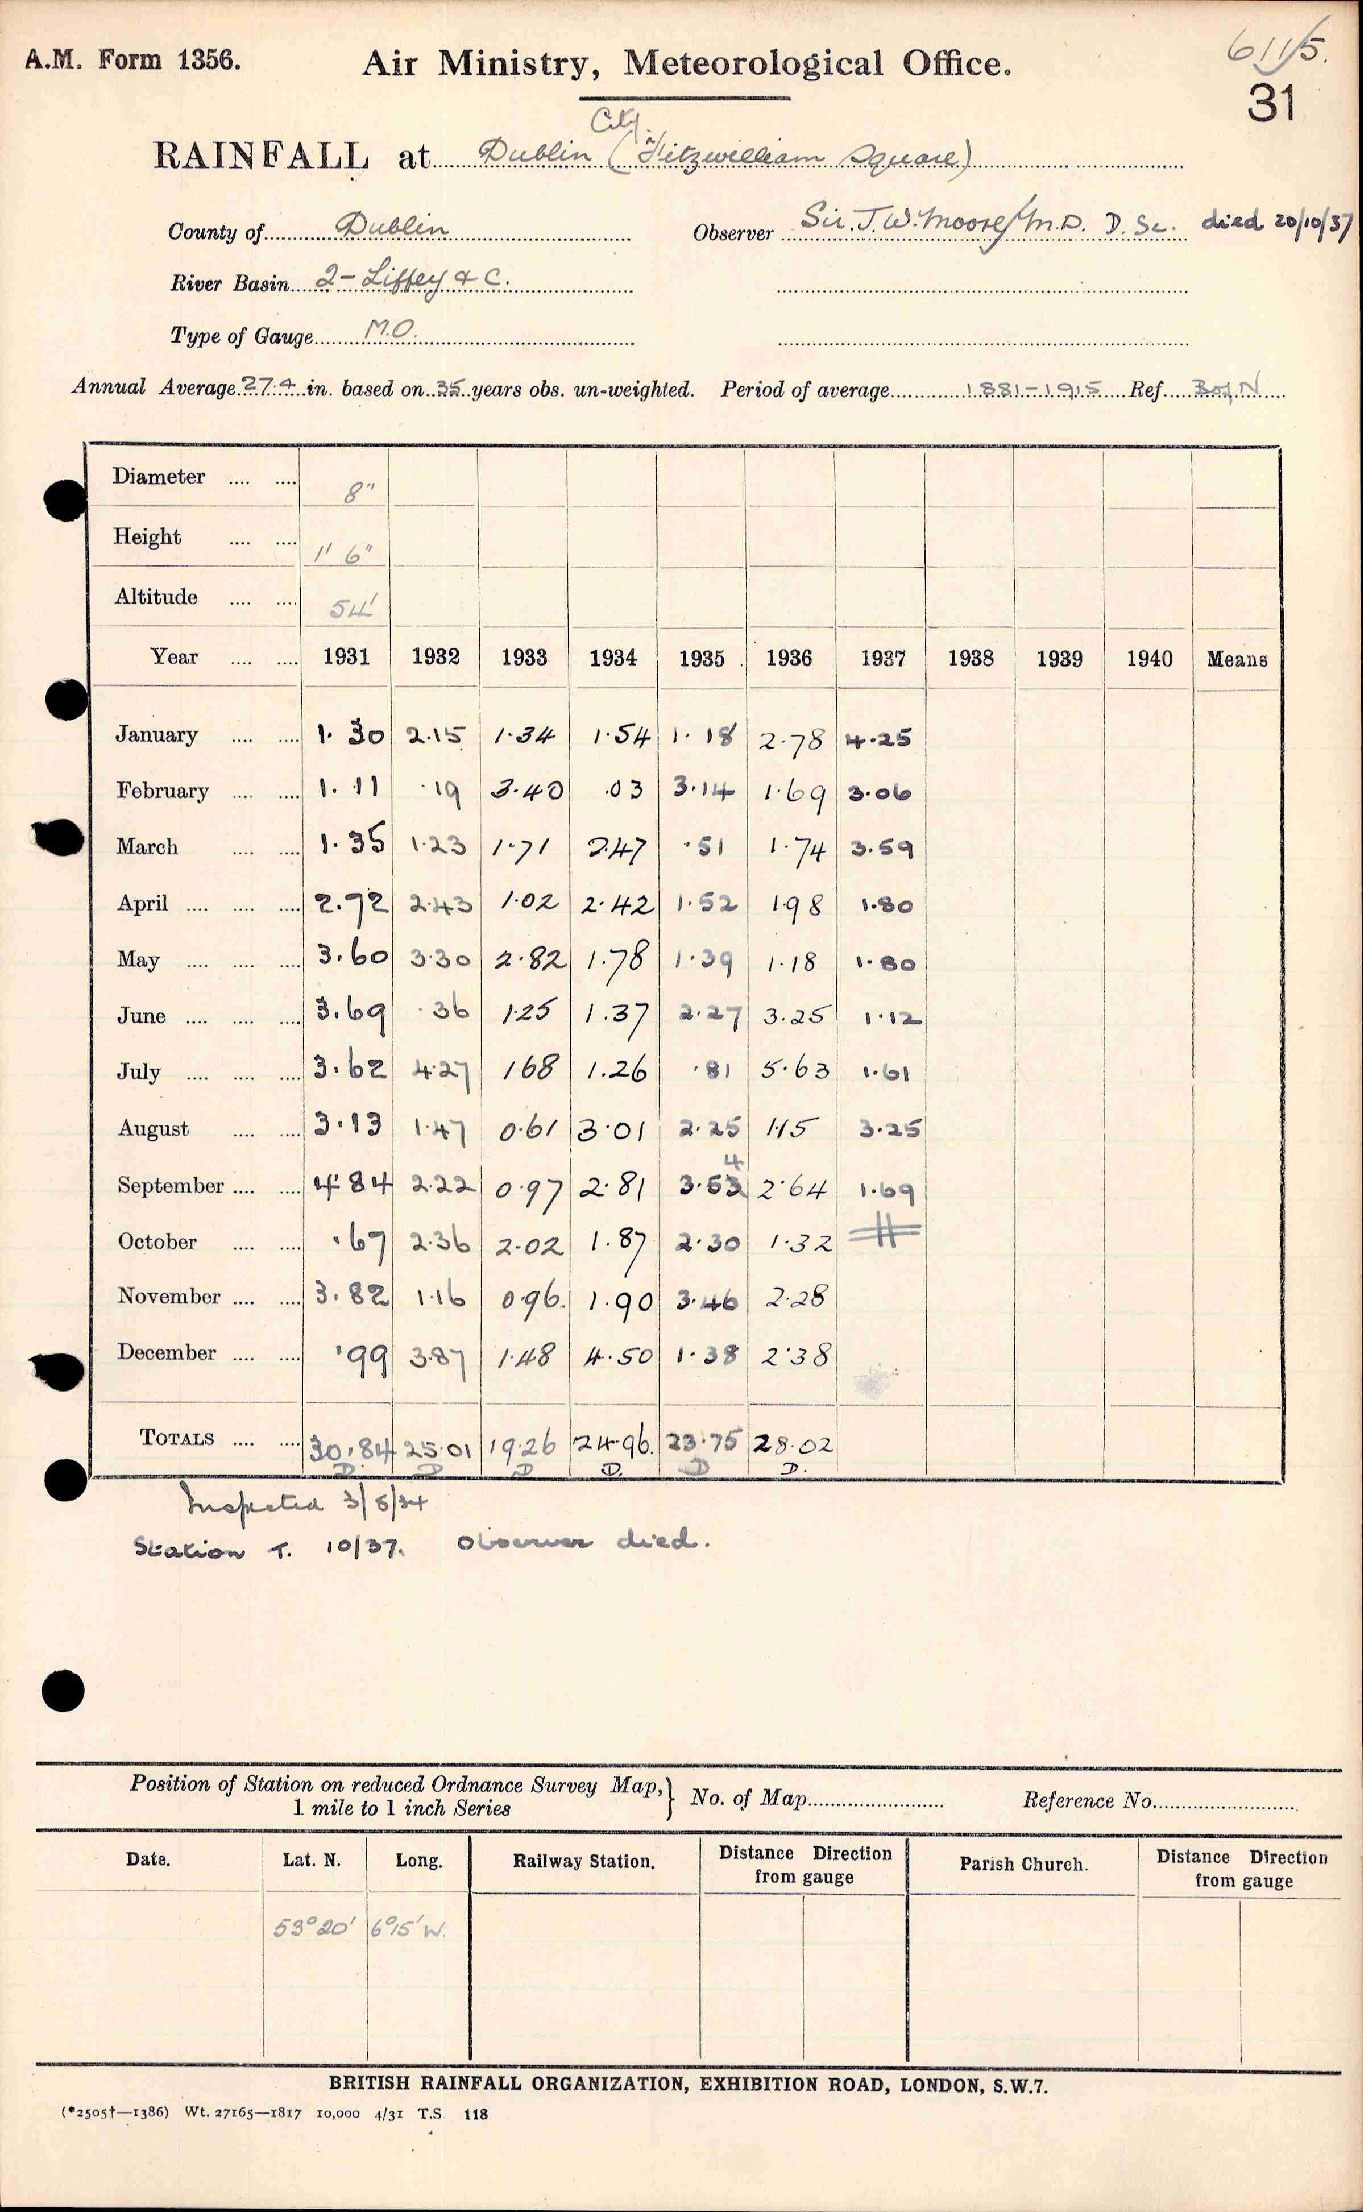 A.M. Form 1356.
Air Ministry, Meteorological Office.
611/5.
31
City
RAINFALL at Dublin (Fitzwilliam Square)
County of Dublin Observer Sir. J. W. Moore, M.D. D. Sc. died 20/10/37
River Basin 2 - Liffey & C.
Type of Gauge M.O.
Annual Average 27.4 in. based on 35 years obs. un-weighted. Period of average 1881-1915 Ref. B of N
Diameter .... .... 8"
Height .... .... 1' 6"
Altitude .... .... 54'
Year .... .... 1931 1932 1933 1934 1935 1936 1937 1938 1939 1940 Means
January .... .... 1.30 2.15 1.34 1.54 1.18 2.78 4.25
February .... .... 1.11 .19 3.40 .03 3.14 1.69 3.06
March .... .... 1.35 1.23 1.71 2.47 .51 1.74 3.59
April .... .... .... 2.72 2.43 1.02 2.42 1.52 1.98 1.80
May .... .... .... 3.60 3.30 2.82 1.78 1.39 1.18 1.80
June .... .... .... 3.69 .36 1.25 1.37 2.27 3.25 1.12
July .... .... .... 3.62 4.27 1.68 1.26 .81 5.63 1.61
August .... .... 3.13 1.47 0.61 3.01 2.25 1.15 3.25
4
September .... .... 4.84 2.22 0.97 2.81 3.53 2.64 1.69
October .... .... .67 2.36 2.02 1.87 2.30 1.32
November .... .... 3.82 1.16 0.96. 1.90 3.46 2.28
December .... .... .99 3.87 1.48 4.50 1.38 2.38
TOTALS .... .... 30.84 25.01 19.26 24.96. 23.75 28.02
D. D D D. D D.
Inspected 3/5/34
Station T. 10/37. Observer died.
Position of Station on reduced Ordnance Survey Map, } No. of Map Reference No.
1 mile to 1 inch Series
Date. Lat. N. Long. Railway Station. Distance Direction from gauge Parish Church. Distance Direction from gauge
53° 20' 6° 15' W.
BRITISH RAINFALL ORGANIZATION, EXHIBITION ROAD, LONDON, S.W.7.
(*2505†—1386) Wt. 27165—1817 10,000 4/31 T.S. 118